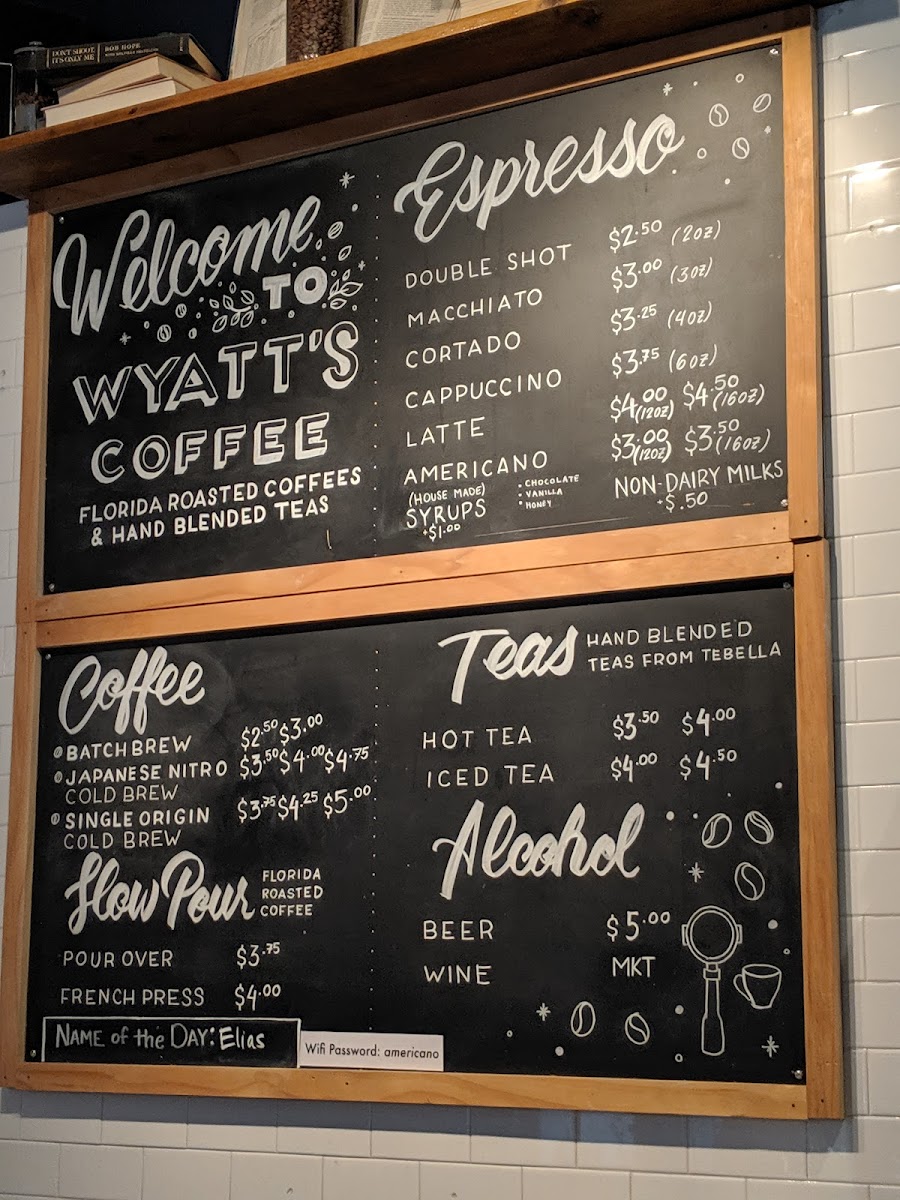 DON'T SHOOT, BOB HOPE
IT'S ONLY ME
Welcome
TO
WYATT'S
COFFEE
FLORIDA ROASTED COFFEES
& HAND BLENDED TEAS
Espresso
DOUBLE SHOT $2.50 (2oz)
MACCHIATO $3.00 (3oz)
CORTADO $3.25 (4oz)
CAPPUCCINO $3.75 (6oz)
LATTE $4.00 (12oz) $4.50 (16oz)
AMERICANO $3.00 (12oz) $3.50 (16oz)
(HOUSE MADE)
SYRUPS
+$1.00
• CHOCOLATE
• VANILLA
• HONEY
NON-DAIRY MILKS
+$.50
Coffee
BATCH BREW $2.50 $3.00
JAPANESE NITRO $3.50 $4.00 $4.75
COLD BREW
SINGLE ORIGIN $3.75 $4.25 $5.00
COLD BREW
Slow Pour
FLORIDA
ROASTED
COFFEE
POUR OVER $3.75
FRENCH PRESS $4.00
NAME of the DAY: Elias
Wifi Password: americano
Teas
HAND BLENDED
TEAS FROM TEBELLA
HOT TEA $3.50 $4.00
ICED TEA $4.00 $4.50
Alcohol
BEER $5.00
WINE MKT